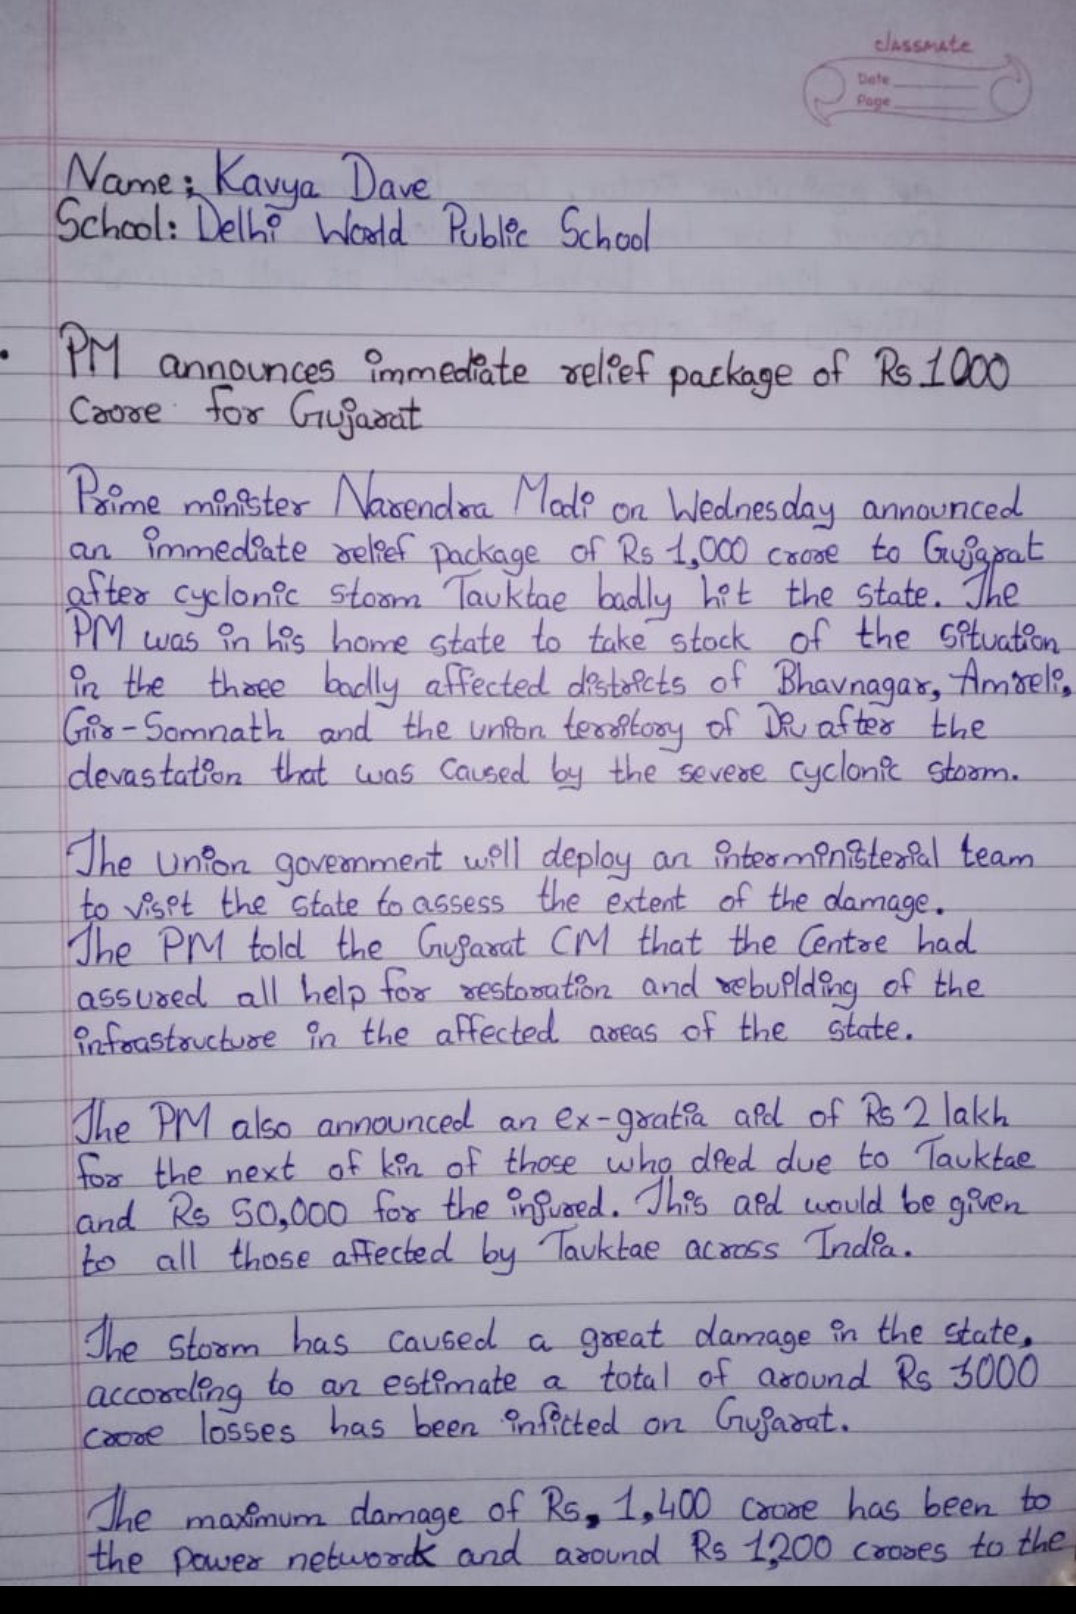 classmate
Date
Page
Name: Kavya Dave
School: Delhi World Public School
PM announces immediate relief package of Rs 1000
Crore for Gujarat
Prime minister Narendra Modi on Wednesday announced
an immediate relief package of Rs 1,000 crore to Gujarat
after cyclonic storm Tauktae badly hit the state. The
PM was in his home state to take stock of the situation
in the three badly affected districts of Bhavnagar, Amreli,
Gir-Somnath and the union territory of Diu after the
devastation that was caused by the severe cyclonic storm.
The union government will deploy an interministerial team
to visit the state to assess the extent of the damage.
The PM told the Gujarat CM that the Centre had
assured all help for restoration and rebuilding of the
infrastructure in the affected areas of the state.
The PM also announced an ex-gratia aid of Rs 2 lakh
for the next of kin of those who died due to Tauktae
and Rs 50,000 for the injured. This aid would be given
to all those affected by Tauktae across India.
The storm has caused a great damage in the state,
according to an estimate a total of around Rs 3000
crore losses has been inficted on Gujarat.
The maximum damage of Rs, 1,400 crore has been to
the power network and around Rs 1,200 crores to the